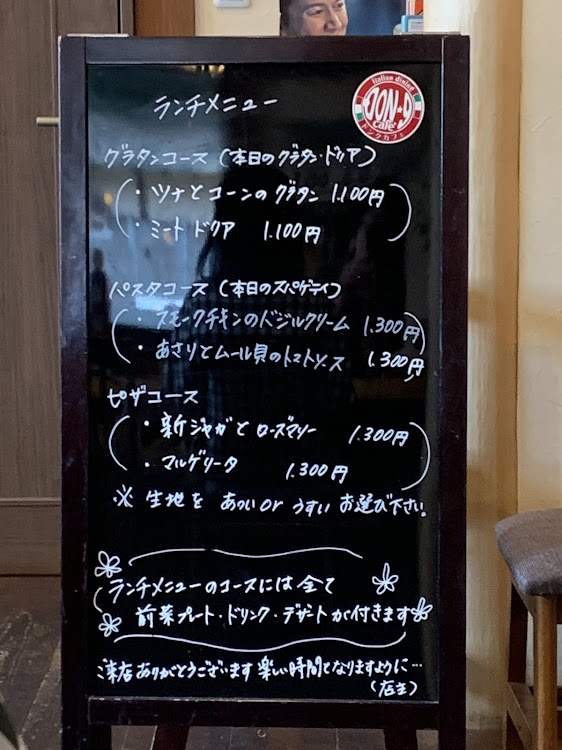 ランチメニュー
Italian dining
DON★D
cafe
ドンクカフェ
グラタンコース(本日のグラタン・ドリア)
・ツナとコーンのグラタン 1.100円
・ミート ドリア 1.100円
パスタコース(本日のスパゲティ)
・スモークチキンのバジルクリーム 1.300円
・あさりとムール貝のトマトソース 1.300円
ピザコース
・新ジャガとローズマリー 1.300円
・マルゲリータ 1.300円
※ 生地を あついor うすい お選び下さい。
ランチメニューのコースには全て
前菜プレート・ドリンク・デザートが付きます
ご来店ありがとうございます 楽しい時間となりますように…
(店主)